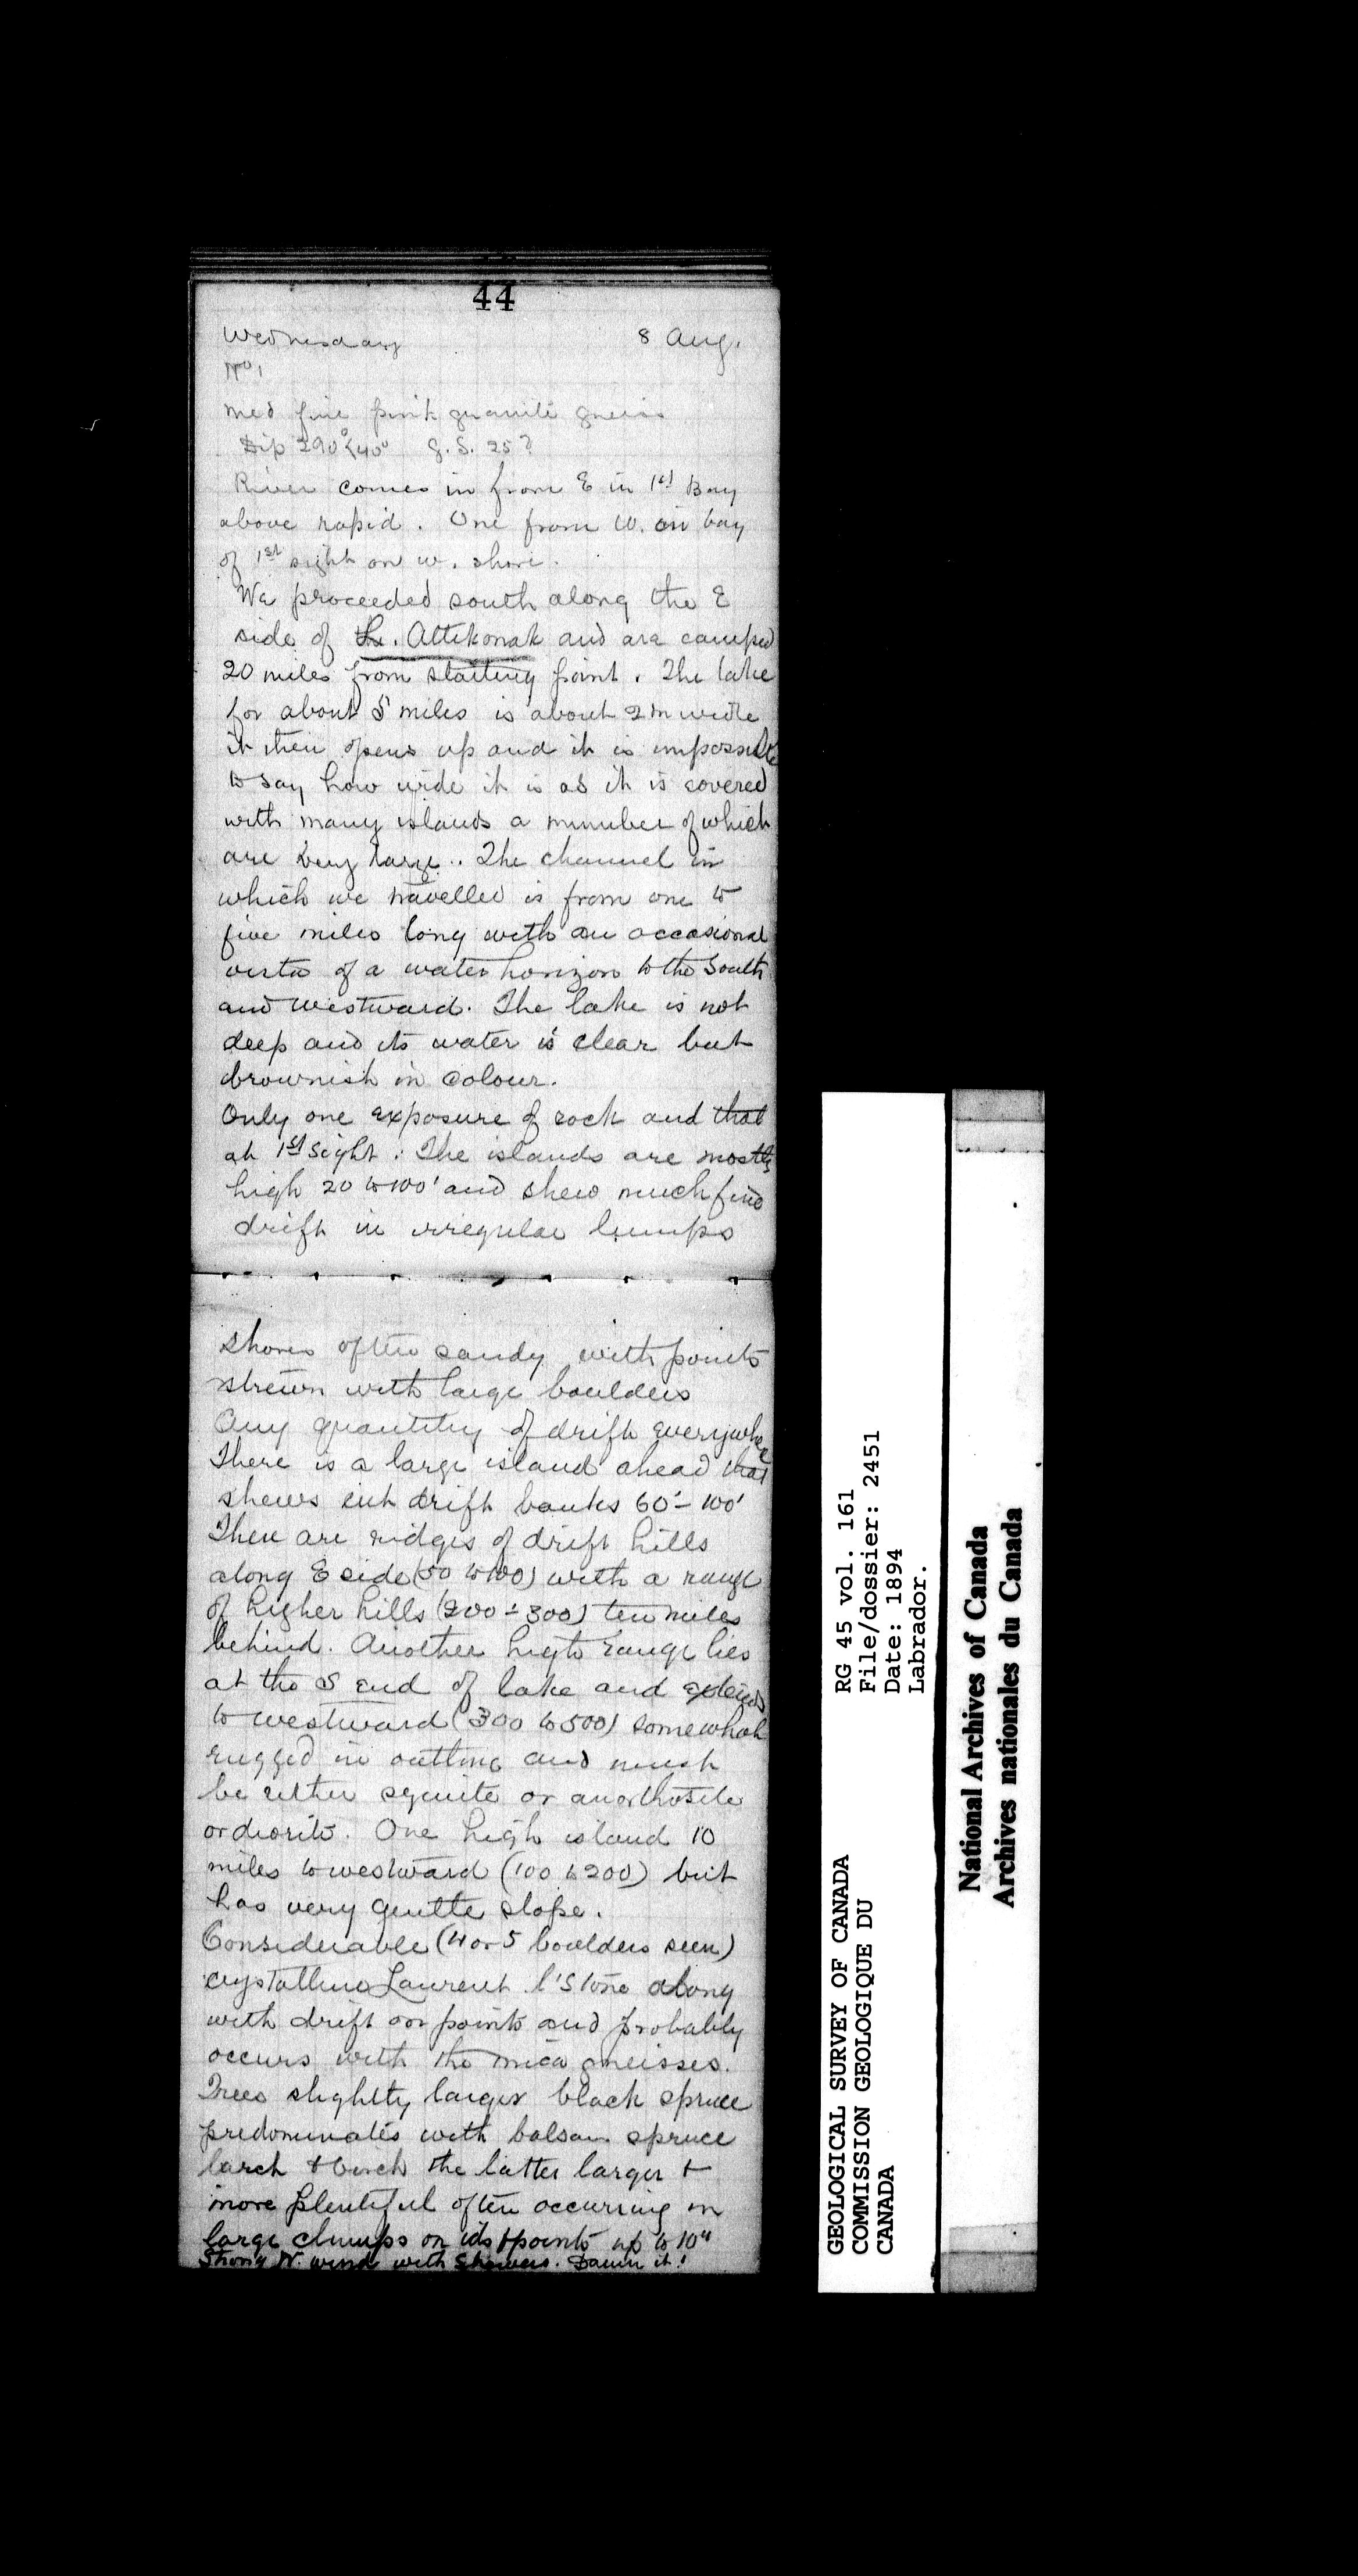 44
Wednesday 8 Aug.
No 1
Med fine pink granite gneiss
Dip 290°<40° G.S. 25?
River comes in from E in 1st Bay
above rapid. One from W. on bay
of 1st sight on w. shore.
We proceeded south along the E
side of L. Attikonak and are camped
20 miles from starting point. The lake
for about 5 miles is about 2 m wide
it then opens up and it is impossible
to say how wide it is as it is covered
with many islands a number of which
are very large.. The channel in
which we travelled is from one to
five miles long with an occasional
vista of a water horizon to the South
and westward. The lake is not
deep and its water is clear but
brownish in colour.
Only one exposure of rock and that
at 1st Sight. The islands are mostly
high 20 to 100' and shew much fine
drift in irregular lumps
shores often sandy with points
strewn with large boulders
Any quantity of drift everywhere
There is a large island ahead that
shews cut drift banks 60'-100'
There are ridges of drift hills
along E side (50 to 100) with a range
of higher hills (200-300) ten miles
behind. Another high range lies
at the S end of lake and extends
to westward (300 to 500) somewhat
rugged in outline and must
be either syenite or anorthosite
or diorite. One high island 10
miles to westward (100 to 200) but
has very gentle slope.
Considerable (4 or 5 boulders seen)
crystalline Laurent. l'Stone along
with drift on points and probably
occurs with the mica gneisses.
Trees slightly larger black spruce
predominates with balsam spruce
larch & birch the latter larger &
more plentiful often occurring in
large clumps on ids & points up to 10"
Strong N. wind with Showers. Damn it!
RG 45 vol. 161
File/dossier: 2451
Date: 1894
Labrador.
GEOLOGICAL SURVEY OF CANADA
COMMISSION GEOLOGIQUE DU
CANADA
National Archives of Canada
Archives nationales du Canada